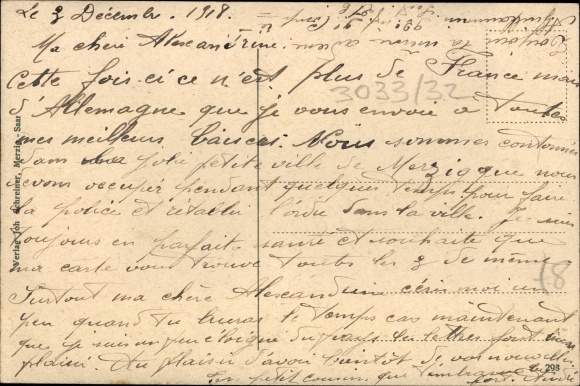 Le 3 Décembre 1918.
Ma chère Alexandrine
Cette fois-ci ce n'est plus de France mais
d'Allemagne que je vous envoie a toutes
mes meilleurs baisers. Nous sommes cantonnés
dans une jolie petite ville de Merzig que nous
avons occupée pendant quelques temps pour faire
la police et établir l'ordre dans la ville. Je suis
toujours en parfaite santé et souhaite que
ma carte vous trouve toutes les 3 de même
Surtout ma chère Alexandrine écris moi un
peu quand tu auras le temps car maintenant
que je suis un peu éloigné du pays les lettres font
plaisir. Au plaisir d'avoir bientôt de vos nouvelles
Ton petit cousin que t'embrasse
Toujours la même adresse
3033/32
18
Verlag Joh. Schreiner, Merzig-Saar
298